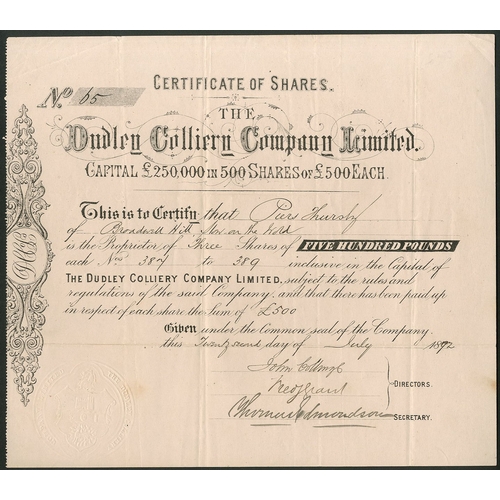 CERTIFICATE OF SHARES.
No. 65
THE
Dudley Colliery Company Limited.
CAPITAL £250,000 IN 500 SHARES OF £500 EACH.
This is to Certify that Piers Thursby
of Broadwell Hill, Stow on the Wold
is the Proprietor of Three Shares of FIVE HUNDRED POUNDS
each Nos 387 to 389 inclusive in the Capital of
THE DUDLEY COLLIERY COMPANY LIMITED, subject to the rules and
regulations of the said Company, and that there has been paid up
in respect of each share the Sum of £500
Given under the Common seal of the Company.
this day of July 1872
John
DIRECTORS.
Thomas Edmondson SECRETARY.